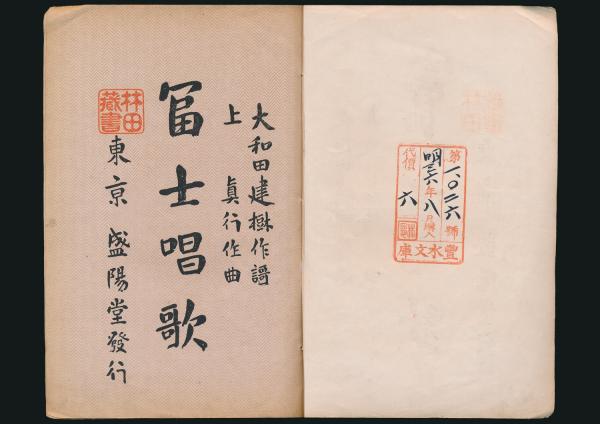 第一〇二六號
明三六年八月購入
代價 六
豐水文庫
大和田建樹作謌
上眞行作曲
冨士唱歌
東京盛陽堂發行
林田
藏書